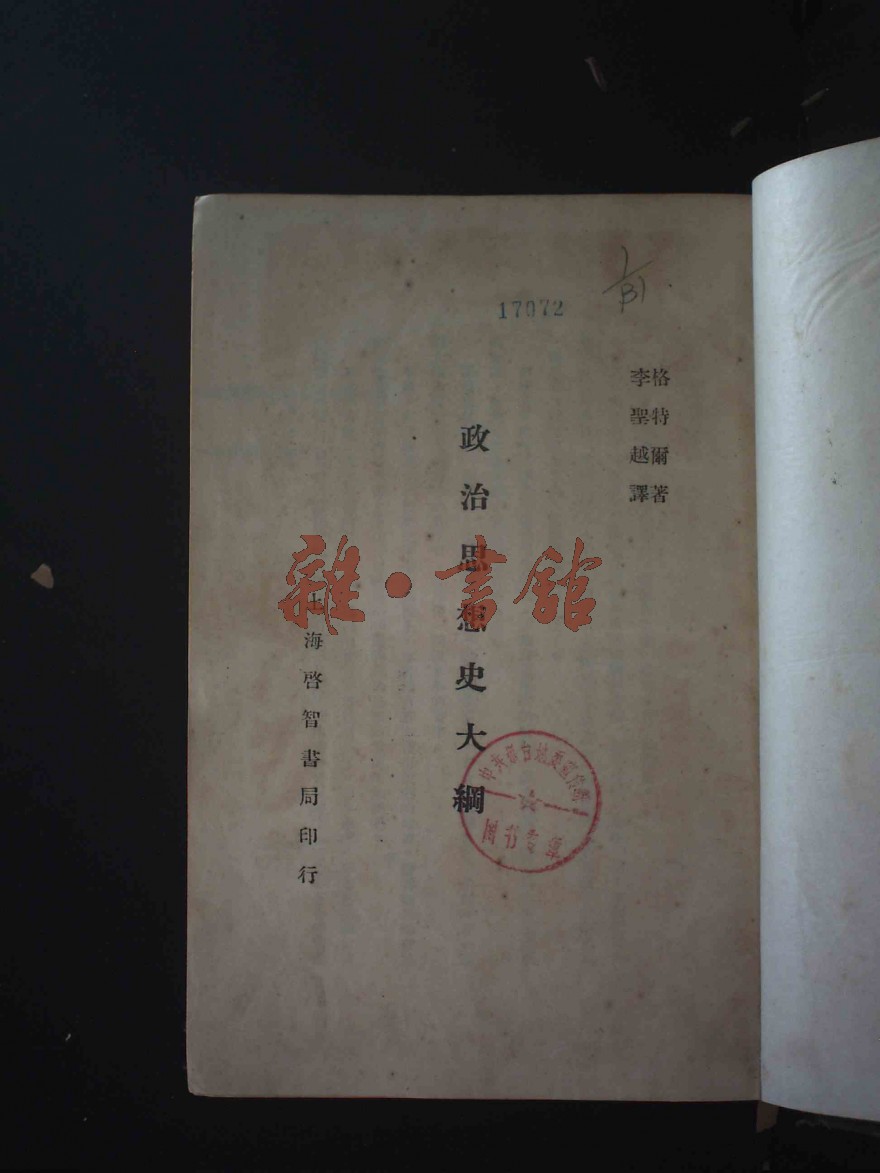 17072
格特爾著
李聖越譯
政治思想史大綱
上海啓智書局印行
雜·書館
图书专章